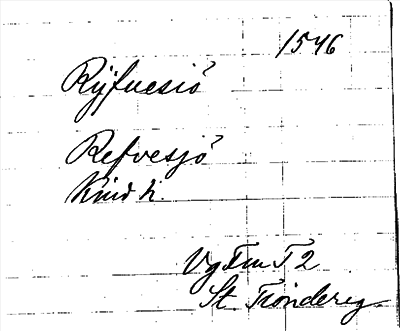 1546
Ryfuesiö
Refvesjö
Kind h.
Vg Fru T 2
St. Trondereg.